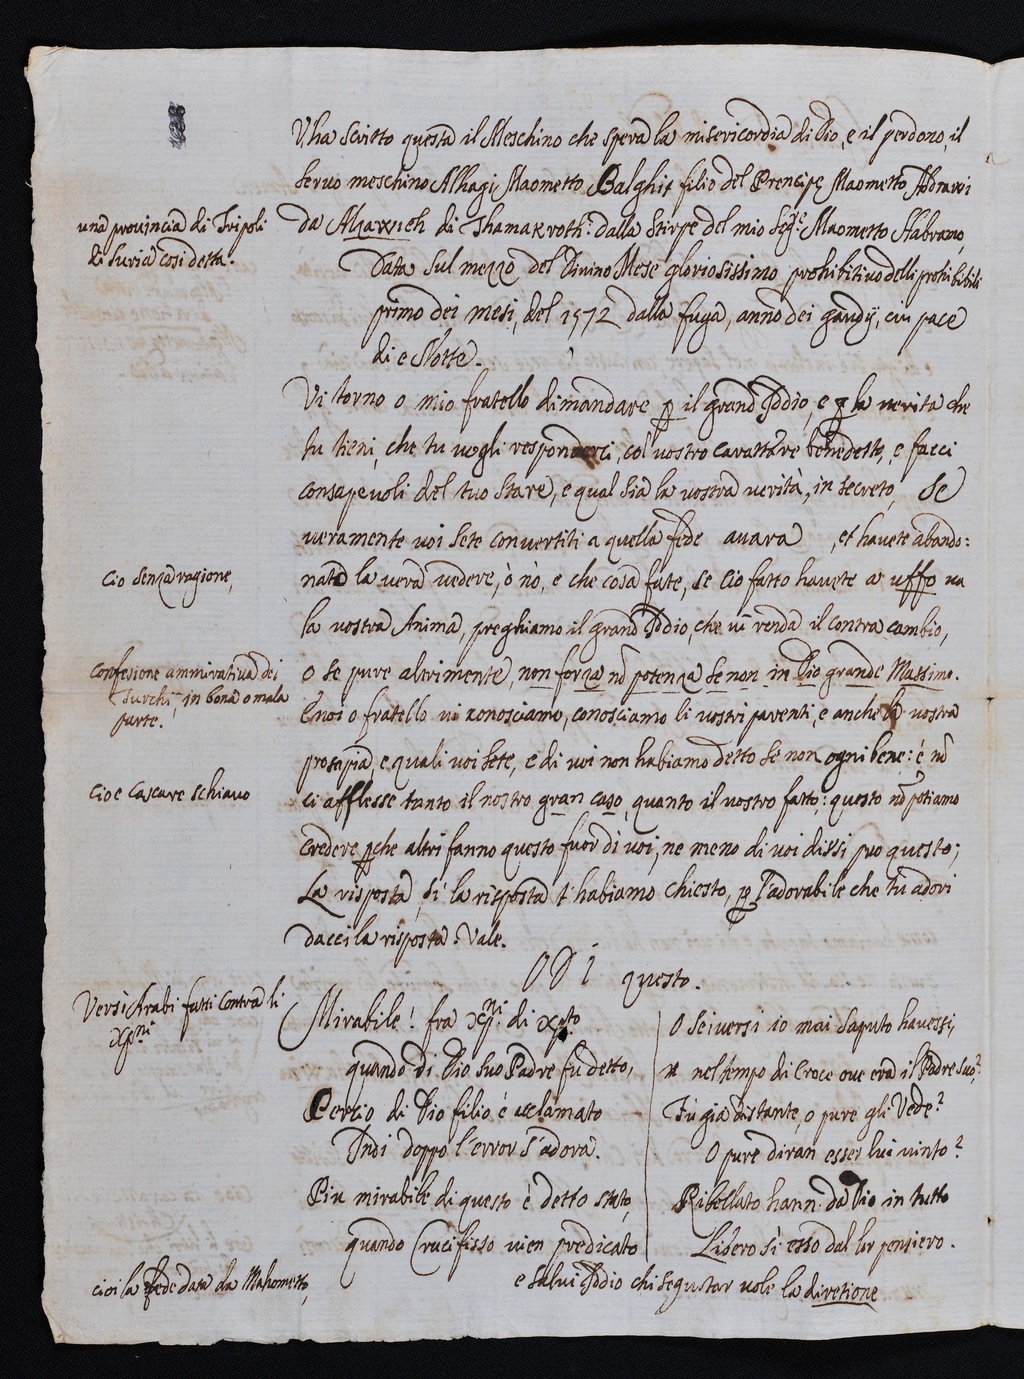 V'ha scritto questa il Meschino che spera la misericordia di Dio, e il perdono, il
servo meschino Alhagi Maometto Balghit filio del Prencipe Maometto Abravoi
una provincia di Tripoli
di Suria così detta.
da Alzawich di Thamakroth: dalla stirpe del mio Sig.e Maometto Stabrano,
Data sul mezzo del Divino Mese gloriosissimo prohibitivo delli prohibibili
primo dei mesi, del 1572 dalla fuga, anno dei gaudij, cu pace
di e Notte.
Vi torno o mio fratello dimandare p il grand Iddio, e p la verita che
tu tieni, che tu vogli responderci, col vostro carattere benedetto, e facci
consapevoli del tuo stare, e qual sia la vostra verità, in secreto, se
veramente voi sete convertiti a quella fede avara, et havete abando:
Cio senza ragione,
nata la vera vedere, ò nò, e che cosa fate, se cio fatto havete a uffo va
la vostra Anima, preghiamo il grand Iddio, che vi renda il contra cambio,
Confesione ammirativa di
Turchi, in bona o mala
parte.
o se pure altrimente, non forza nò potenza se non in Dio grande Massimo.
E noi o fratello vi conosciamo, conosciamo li vostri parenti, e anche la vostra
prosapia, e quali voi sete, e di voi non habiamo detto se non ogni bene: è nò
Cioe cascare schiavo
ci afflesse tanto il nostro gran caso, quanto il vostro fatto: questo nò potiamo
credere pche altri fanno questo fuor di voi, ne meno di voi dissi puo questo;
La risposta, sì la risposta t'habiamo chiesto, p l'adorabile che tù adori
dacci la risposta. Vale.
ODI questo.
Versi Arabi fatti contra li
Xpni
Mirabile! fra Xpni di Xpto
quando di Dio suo Padre fu detto,
Percio di Dio filio è acclamato
Indi doppo l'error s'adora.
Piu mirabile di questo è detto stato,
quando Crucifisso vien predicato
O se i versi io mai saputo havessi,
nel tempo di Croce ove era il Padre suo?
Fù già distante, o pure gli Vede?
O pure diran esser lui vinto?
Ribellato hann da Dio in tutto
Libero sì esso dal lor pensiero.
cioi la fede data da Mahometto,
e salvi Iddio chi segustar vole la diretione